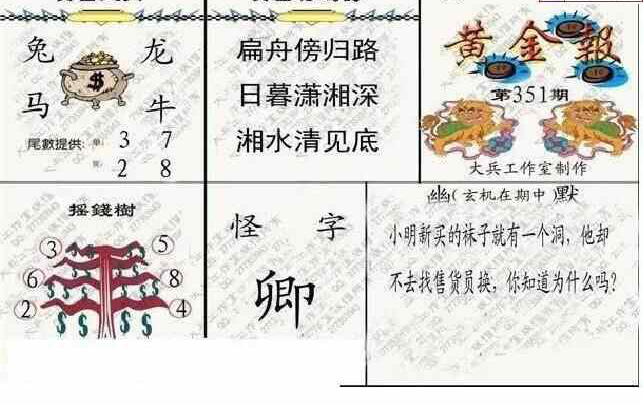 兔 龙
马 牛
尾數提供: 单: 3 7
2 8
扁舟傍归路
日暮潇湘深
湘水清见底
黄金報
第351期
大兵工作室制作
摇錢樹
3 5
6 8
2 4
怪 字
卿
幽(玄机在期中)默
小明新买的袜子就有一个洞，他却
不去找售货员换，你知道为什么吗?